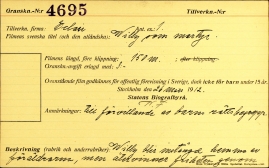 Granskn.-Nr 4695 Tillverkn.-Nr
Tillverkare, firma: Eclair
Filmens svenska titel och dess nationalitet: Willy som martyr.
Filmens längd, före klippning: 150 m. efter klippning
Granskningsavgift erlagd med:
Ovanstående film godkännes för offentlig förevisning i Sverige, dock icke för barn under 15 år.
Stockholm den 26 mars 1912.
Statens Biografbyrå.
Anmärkningar: Till förevållande av barns rättsbegrepp.
Beskrivning (rubrik och underrubriker): Willy blir hemma av
föräldrarna, men återvinner friheten genom